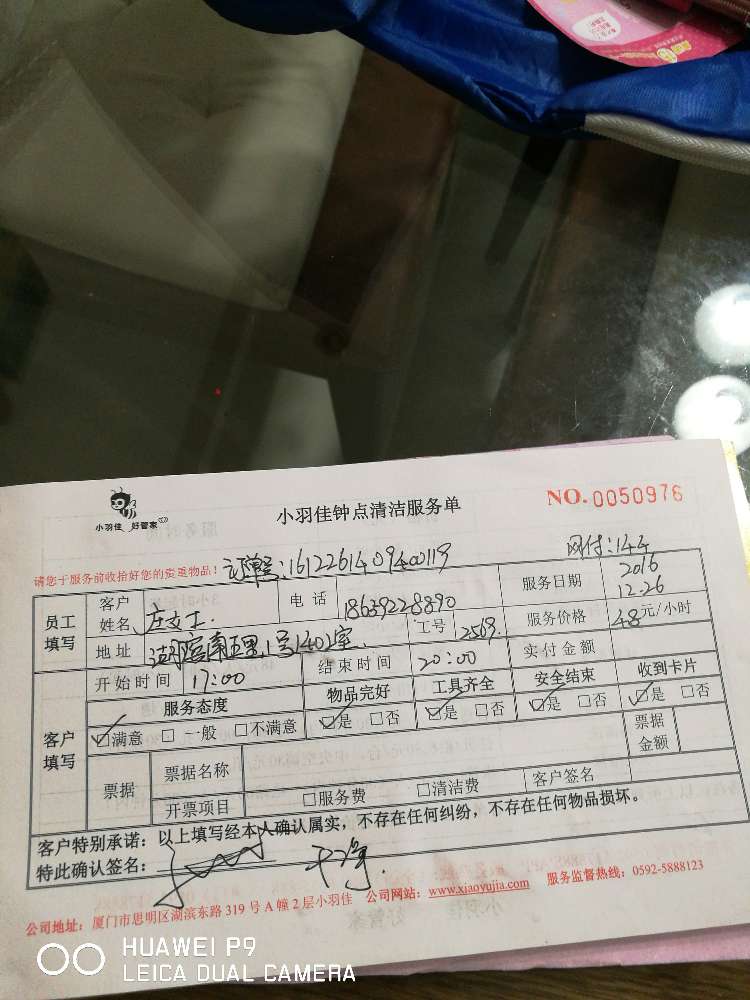 小羽佳 好管家
小羽佳钟点清洁服务单
NO.0050976
请您于服务前收拾好您的贵重物品!
订单号:1612261409400119
网付:144
员工填写
客户姓名 庄女士 电话 18639228890 服务日期 2016 12.26
地址 1号1401室 工号 2569 服务价格 48元/小时
开始时间 17:00 结束时间 20:00 实付金额
客户填写
服务态度 物品完好 工具齐全 安全结束 收到卡片
☑满意 □一般 □不满意 ☑是 □否 ☑是 □否 ☑是 □否 ☑是 □否
票据 票据名称 票据金额
开票项目 □服务费 □清洁费 客户签名
客户特别承诺:以上填写经本人确认属实,不存在任何纠纷,不存在任何物品损坏。
特此确认签名:
公司地址:厦门市思明区湖滨东路 319 号 A 幢 2 层小羽佳 公司网站:www.xiaoyujia.com 服务监督热线:0592-5888123
HUAWEI P9
LEICA DUAL CAMERA